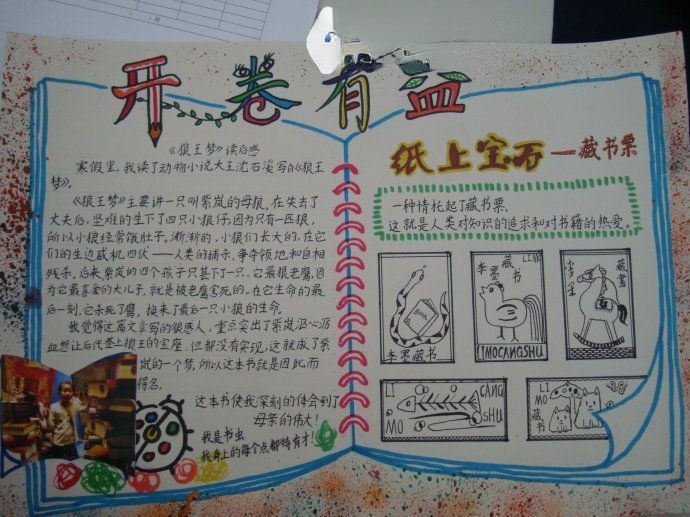 开卷有益
《狼王梦》读后感
寒假里,我读了动物小说大王沈石溪写的《狼王
梦》。
《狼王梦》主要讲一只叫紫岚的母狼,在失去了
丈夫后,坚难的生下了四只小狼仔,因为只有一匹狼,
所以小狼经常饿肚子。渐渐的,小狼们长大的,在它
们的生边威机四伏——人类的捕杀,争夺领地,和自相
残杀。后来紫岚的四个孩子只甚下了一只。它最狠老鹰,因
为它最喜爱的大儿子,就是被老鹰害死的。在它生命的最
后一刻,它杀死了鹰,换来了最后一只小狼的生命。
我觉得这篇文章写的狠感人,重点突出了紫岚沤心沥
血想让后代登上狼王的宝座。但都没有实现,这就成了紫
岚的一个梦,所以这本书就是因此而
得名。
这本书使我深刻的体会到了
母亲的伟大!
我是书虫
我身上的每个点都特有才!
纸上宝石——藏书票
一种情托起了藏书票,
这就是人类对知识的追求和对书籍的热爱。
Book
李墨藏书
李墨藏书
LIMOCANGSHU
李墨
藏書
LI
MO
CANG
SHU
LI
MO
藏书